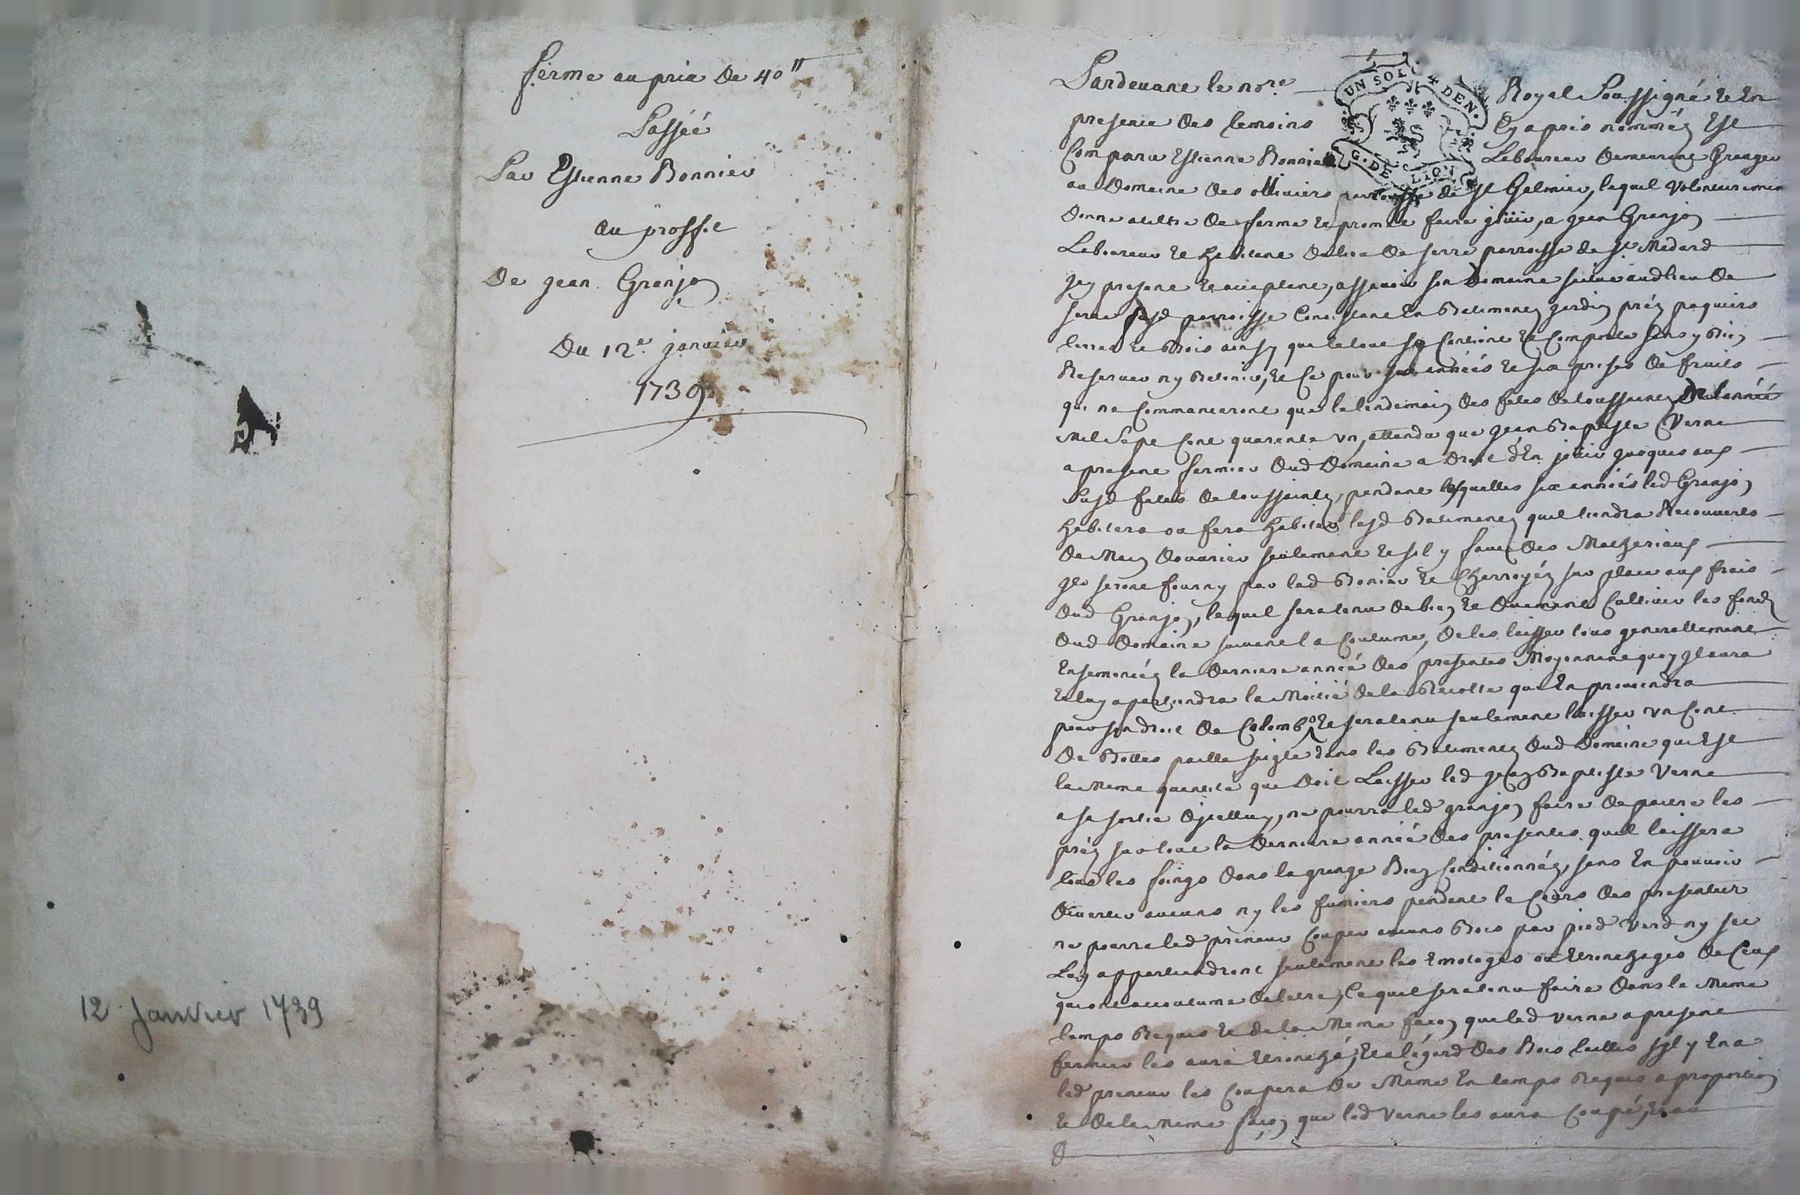 12 Janvier 1739
ferme au prix de 40ᵗᵗ
Passéé
Par Estienne Bonnier
au proffit
De jean Granjon
Du 12ᵉ janvier
1739
Pardevant le noʳᵉ Royal Soussigné Et En
presence des temoins Cy apres nommés Est
Comparu Estienne Bonnier Laboureur demeurant Granger
au Domaine des olliviers parroisse de Sᵗ Galmier, lequel volontairement
donne a titre de ferme et promet faire jouir, a jean Granjon
Laboureur et habitant du lieu de serre parroisse de Sᵗ Medard
jcy present et acceptant, assavoir son Domaine scitué audlieu de
serre susd parroisse Consistant En Batiments jardin préz paquiers
terres et Bois ainsy que le tout se Contient et Comporte sans y Rien
Reserver ny Retenir, et Ce pour six annéés et six prises de fruits
qui ne Commanceront que le lendemain des fetes de toussaints de l'annéé
Mil Sept Cent quarente un, attendu que jean Baptiste Verne
a present fermier dud Domaine a droit d'En jouir jusques aux
susd fetes de toussaints, pendant lesquelles six annéés led Granjon
habitera ou fera habiter lesd Batiments quil tiendra Recouverts
de Main douvrier seulement et sil y faut des Matheriaux
jls seront fourny par led Bonier et Charroyés sur place aux frais
dud Granjon, lequel sera tenu de bien et duement Cultiver les fonds
dud Domaine suivant la Coutume, de les laisser tous generallement
Ensemencés la derniere annéé des presentes Moyennant quoy jl aura
et luy apartiendra la Moitié de la Recolte que En proviendra
pour son droit de Colomb et sera tenu seulement laisser un Cent
de Bottes paille seigle dans les Batiments dud Domaine qui Est
la meme quantité que doit Laisser led jean Baptiste Verne
a sa sortie djcelluy, ne pourra led granjon faire depaitre les
préz sur tout la derniere annéé des presentes quil laissera
tous les foings dans la grange Bien Conditionnés, sans En pouvoir
divertir aucuns ny les fumiers pendant le Cours des presentes
ne pourra led preneur Couper aucuns Bois par pied Verd ny sec
Luy appartiendront seulement les Emotages ou Etronchages de Ceux
qui ont accoutumé de letre, Ce quil sera tenu faire dans le Meme
temps Requis et de la Meme façon que led verne a present
fermier les aura Etronché, Et a légard des Bois taillis sjl y En a
led preneur les Coupera de Meme En temps Requis a proportion
et de la Meme façon que led Verne les aura Coupé, Et au